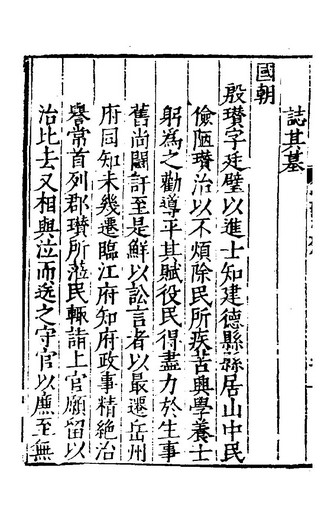 誌其墓
國朝
殷瓚字廷璧以進士知建德縣縣居山中民
儉陋瓚治以不煩除民所疾苦興學養士
躬為之勸導平其賦役民得盡力於生事
舊尚鬭訐至是鮮以訟言者以最遷岳州
府同知未幾遷臨江府知府政事精絶治
譽常首列郡瓚所蒞民輒請上官願留以
治比去又相與泣而送之守官以廉至無